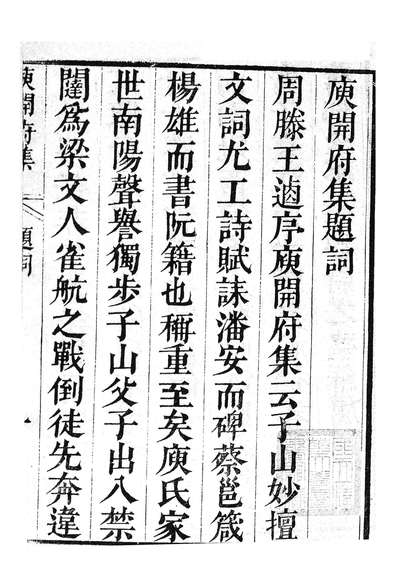 庾開府集題詞
周滕王逌序庾開府集云子山妙擅
文詞尤工詩賦誄潘安而碑蔡邕箴
楊雄而書阮籍也稱重至矣庾氏家
世南陽聲譽獨步子山父子出入禁
闥爲梁文人雀航之戰倒徒先奔違
庾開府集
題詞